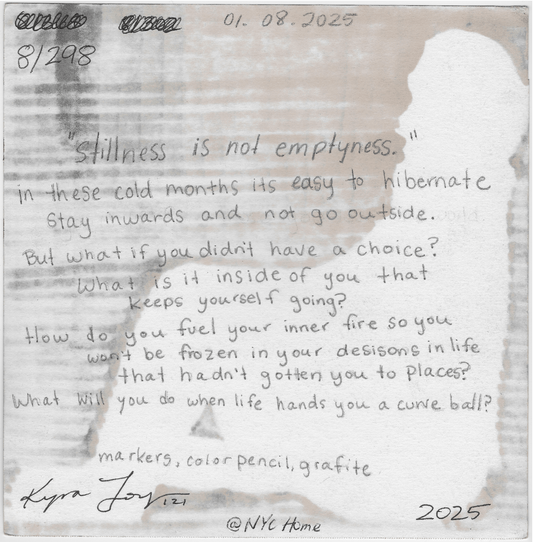 01. 08. 2025
8/298
"stillness is not emptyness."
in these cold months its easy to hibernate
stay inwards and not go outside.
But what if you didn't have a choice?
What is it inside of you that
keeps yourself going?
How do you fuel your inner fire so you
won't be frozen in your desisons in life
that hadn't gotten you to places?
What will you do when life hands you a curve ball?
markers, color pencil, grafite
Kyra Joy 121
2025
@NYC Home